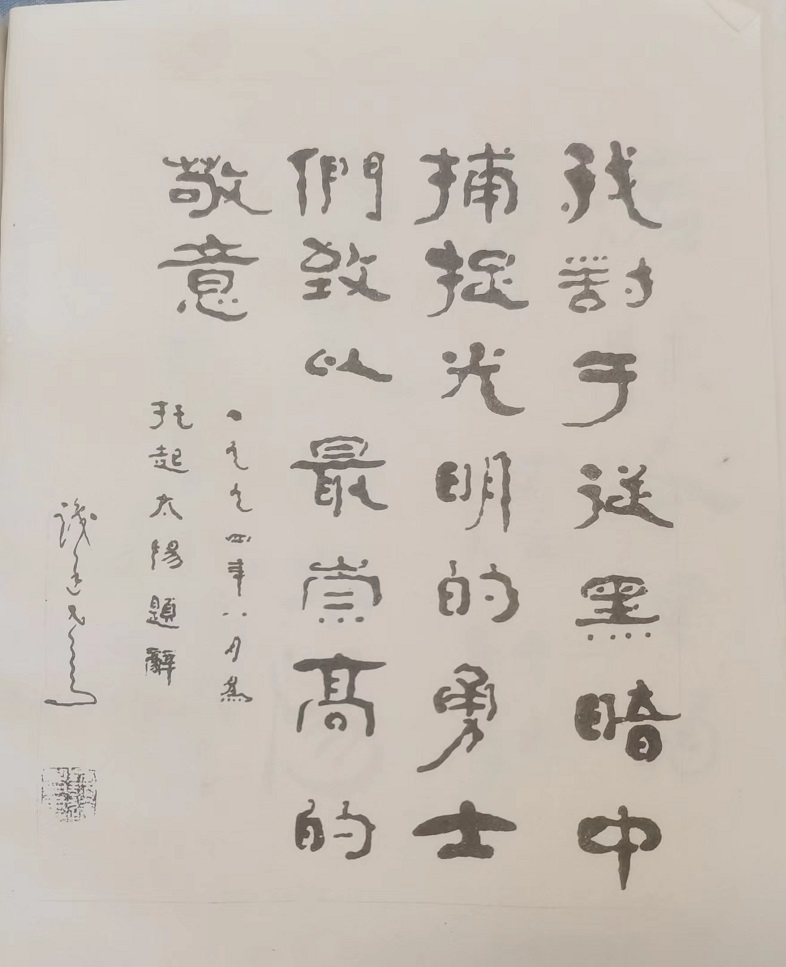 我對于從黑暗中
捕捉光明的勇士
們致以最崇高的
敬意
一九九四年八月為
托起太陽題辭